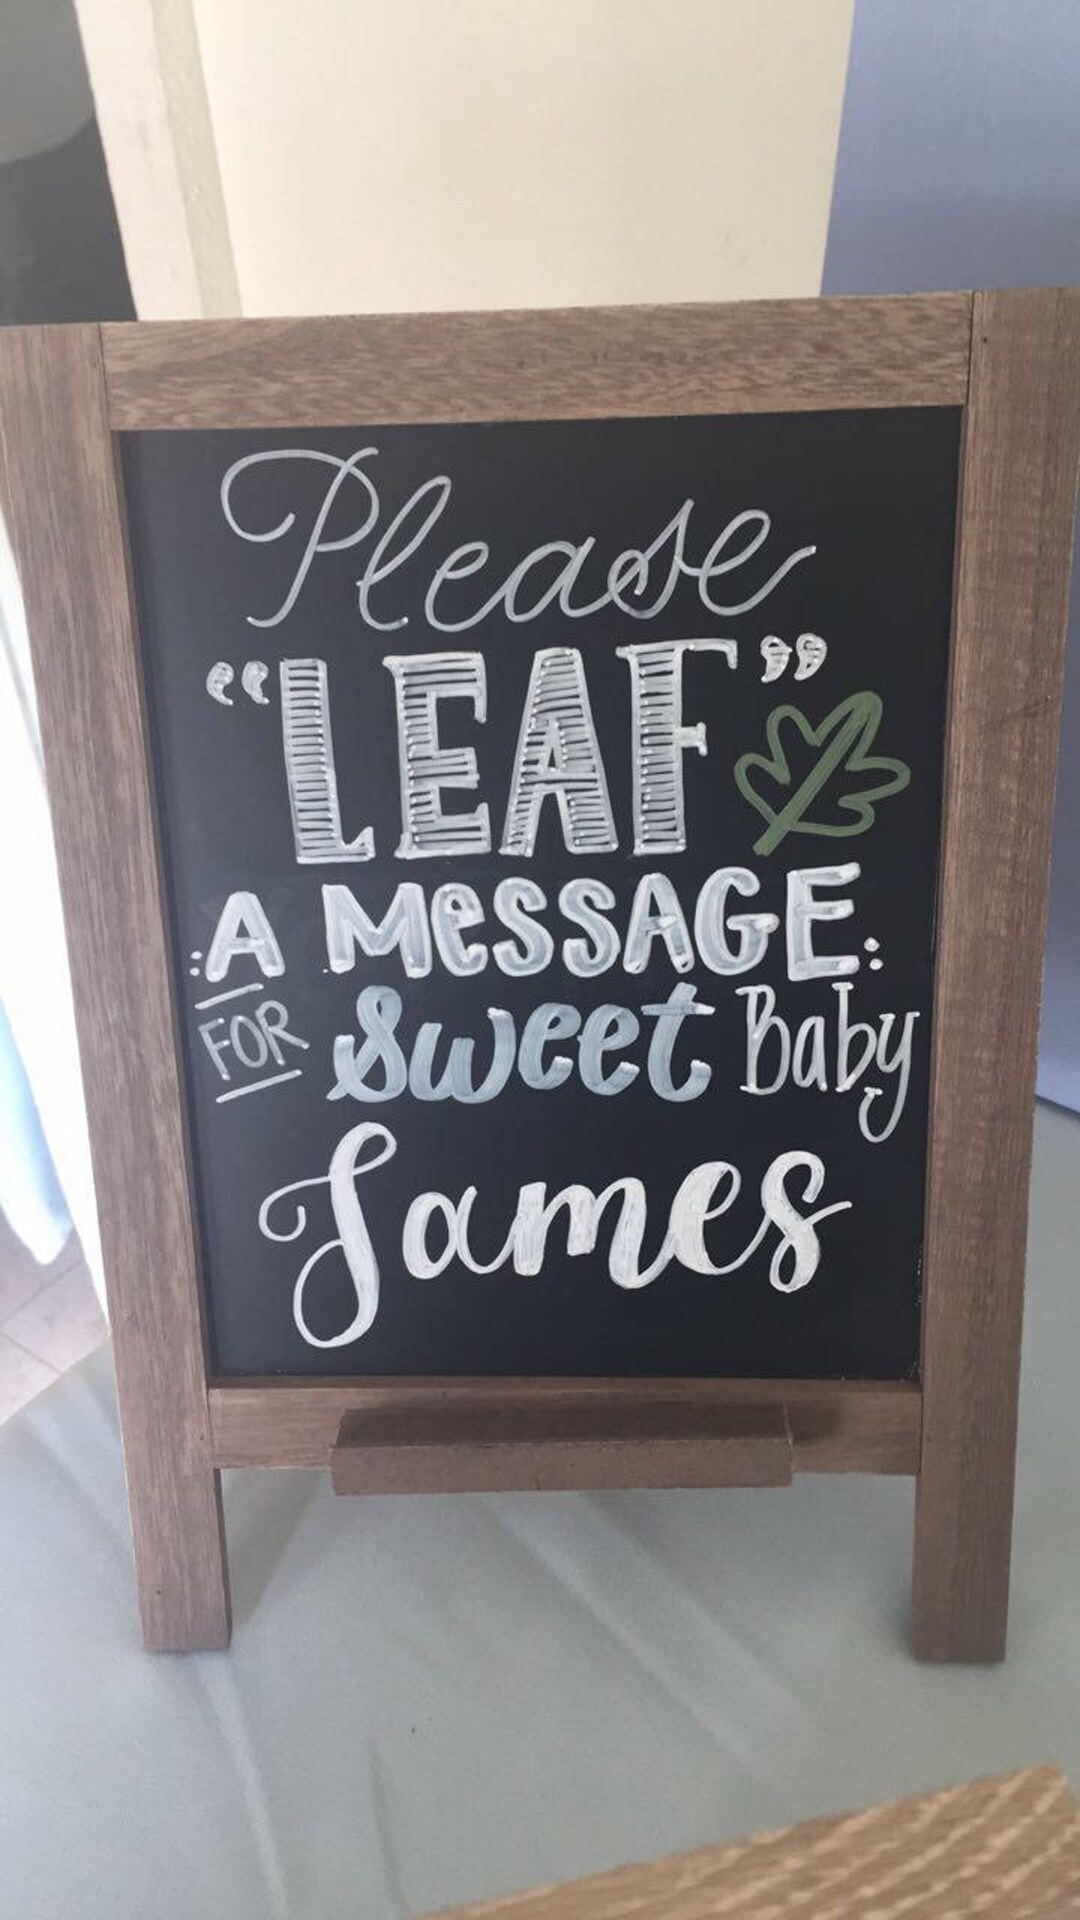 Please
“LEAF”
:A MeSSAGE:
FOR Sweet Baby
James